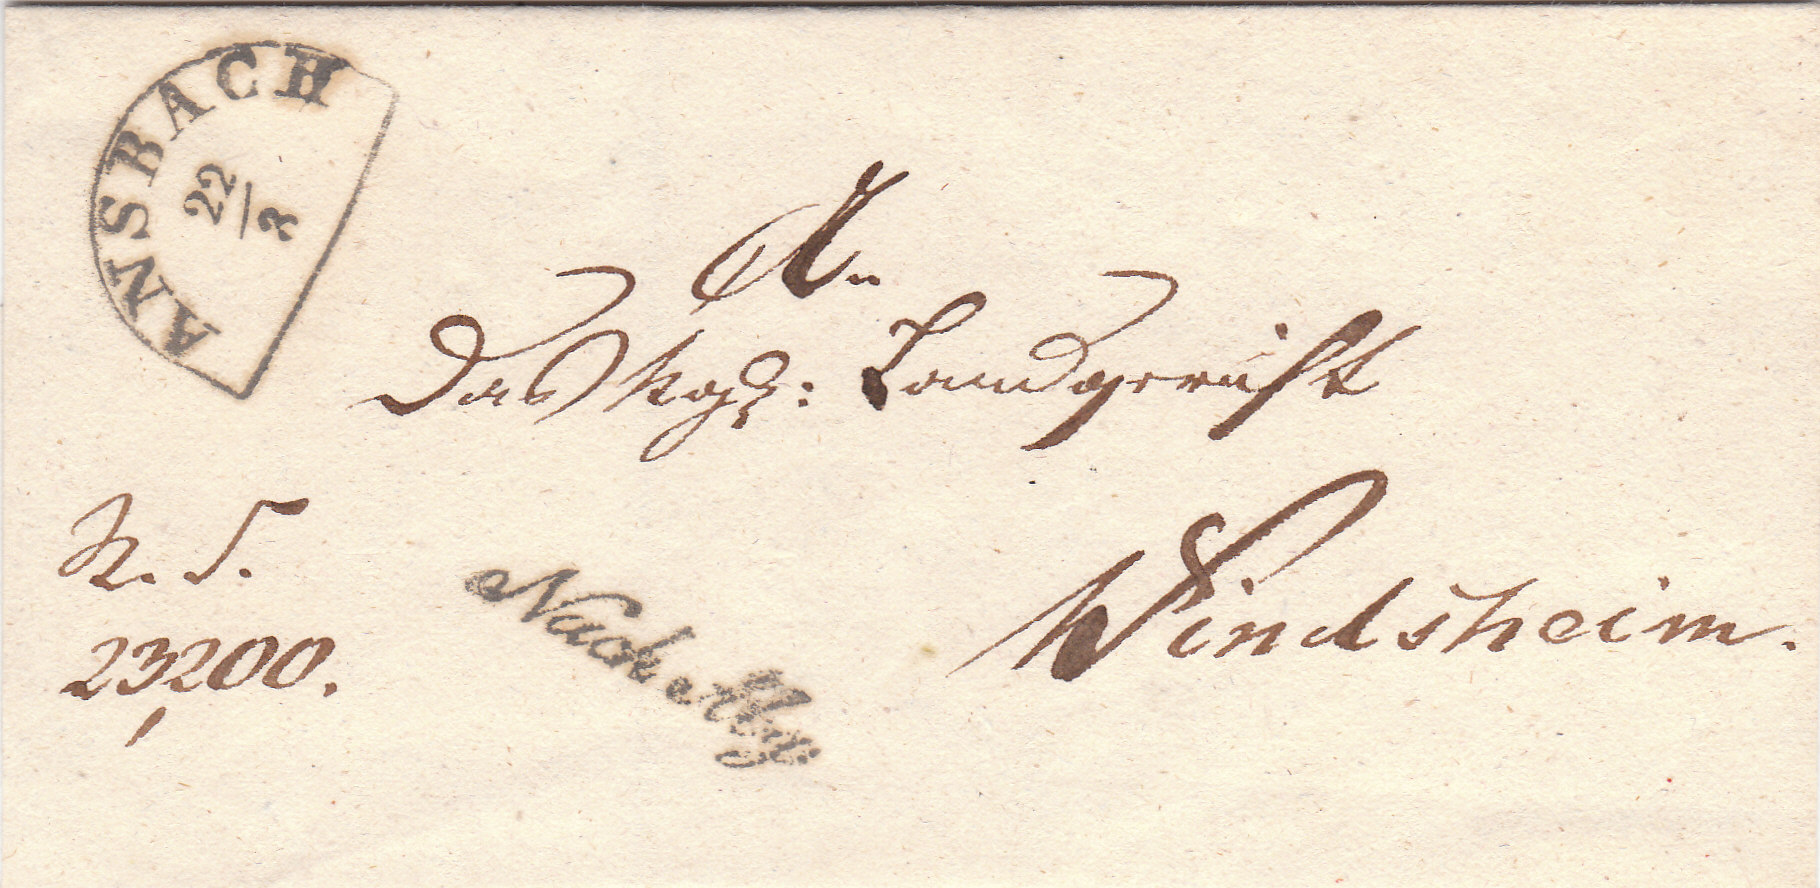 ANSBACH
22
3
An
Das Kgl: Landgericht
Windsheim.
R. S.
23200.
Nach Abg.